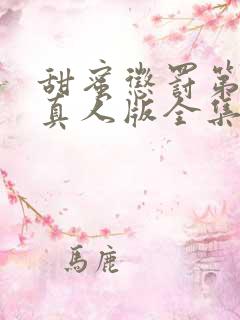 甜蜜懲罰第
真人版全集
馬鹿